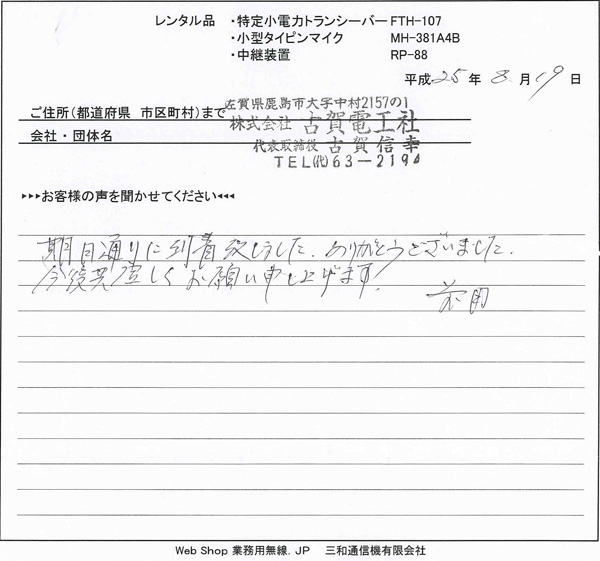 レンタル品 ・特定小電力トランシーバーFTH-107
・小型タイピンマイク MH-381A4B
・中継装置 RP-88
平成 25 年 8 月 19 日
ご住所(都道府県 市区町村)まで 佐賀県鹿島市大字中村2157の1
会社・団体名 株式会社 古賀電工社
代表取締役 古賀信幸
TEL(代)63-2194
▸▸▸お客様の声を聞かせてください◂◂◂
期日通りに到着致しました。ありがとうございました。
今後共宜しくお願い申し上げます。
Web Shop 業務用無線.JP 三和通信機有限会社